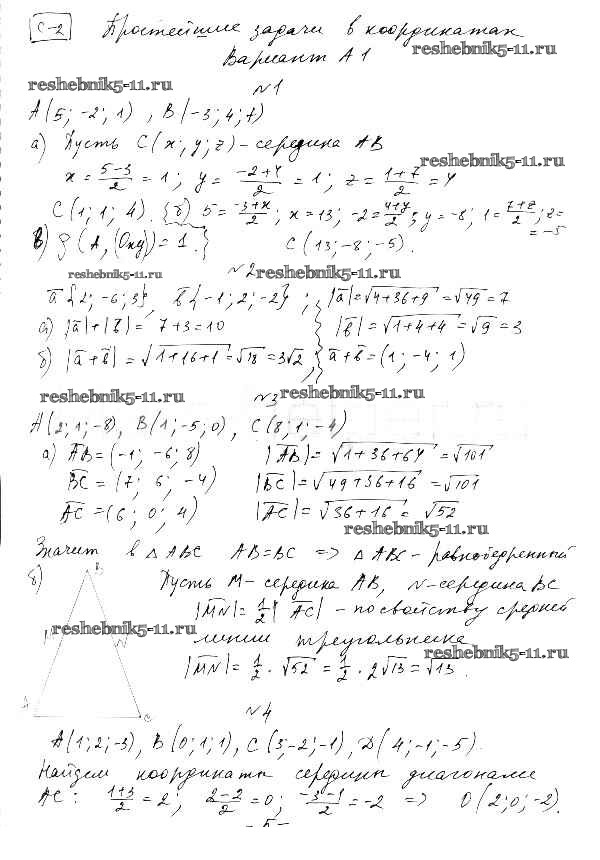 С-2 Простейшие задачи в координатах
reshebnik5-11.ru
Вариант А1
reshebnik5-11.ru
№1
A(5; -2; 1), B(-3; 4; 7)
а) Пусть C(x; y; z) - середина AB
reshebnik5-11.ru
x = (5-3)/2 = 1; y = (-2+4)/2 = 1; z = (1+7)/2 = 4
C(1; 1; 4). б) 5 = (-3+x)/2; x = 13; -2 = (4+y)/2; y = -8; 1 = (7+z)/2; z =
= -5
в) ρ(A, (Oxy)) = 1. C(13; -8; -5).
reshebnik5-11.ru №2 reshebnik5-11.ru
a{2; -6; 3}, b{-1; 2; -2}; |a| = √(4+36+9) = √49 = 7
а) |a|+|b| = 7+3 = 10 |b| = √(1+4+4) = √9 = 3
б) |a+b| = √(1+16+1) = √18 = 3√2, a+b = (1; -4; 1)
reshebnik5-11.ru №3 reshebnik5-11.ru
A(2; 1; -8), B(1; -5; 0), C(8; 1; -4)
а) AB = (-1; -6; 8) |AB| = √(1+36+64) = √101
BC = (7; 6; -4) |BC| = √(49+36+16) = √101
AC = (6; 0; 4) |AC| = √(36+16) = √52
reshebnik5-11.ru
Значит в △ABC AB=BC => △ABC - равнобедренный
б) B Пусть M - середина AB, N - середина BC
|MN| = 1/2 |AC| - по свойству средней
reshebnik5-11.ru линии треугольника
reshebnik5-11.ru
|MN| = 1/2 · √52 = 1/2 · 2√13 = √13.
A C
№4
A(1; 2; -3), B(0; 1; 1), C(3; -2; -1), D(4; -1; -5).
Найдем координаты середины диагонали
AC: (1+3)/2 = 2; (2-2)/2 = 0; (-3-1)/2 = -2 => O(2; 0; -2).
- 5 -